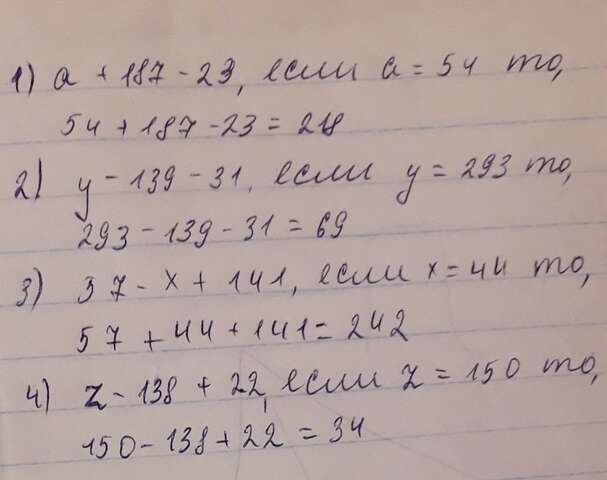 1) a + 187 - 23, если a = 54 то,
54 + 187 - 23 = 218
2) y - 139 - 31, если y = 293 то,
293 - 139 - 31 = 69
3) 37 - x + 141, если x = 44 то,
57 + 44 + 141 = 242
4) z - 138 + 22, если z = 150 то,
150 - 138 + 22 = 34